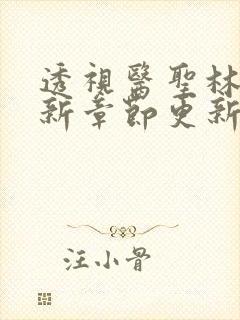 透視醫聖林
新章節更新
汪小骨